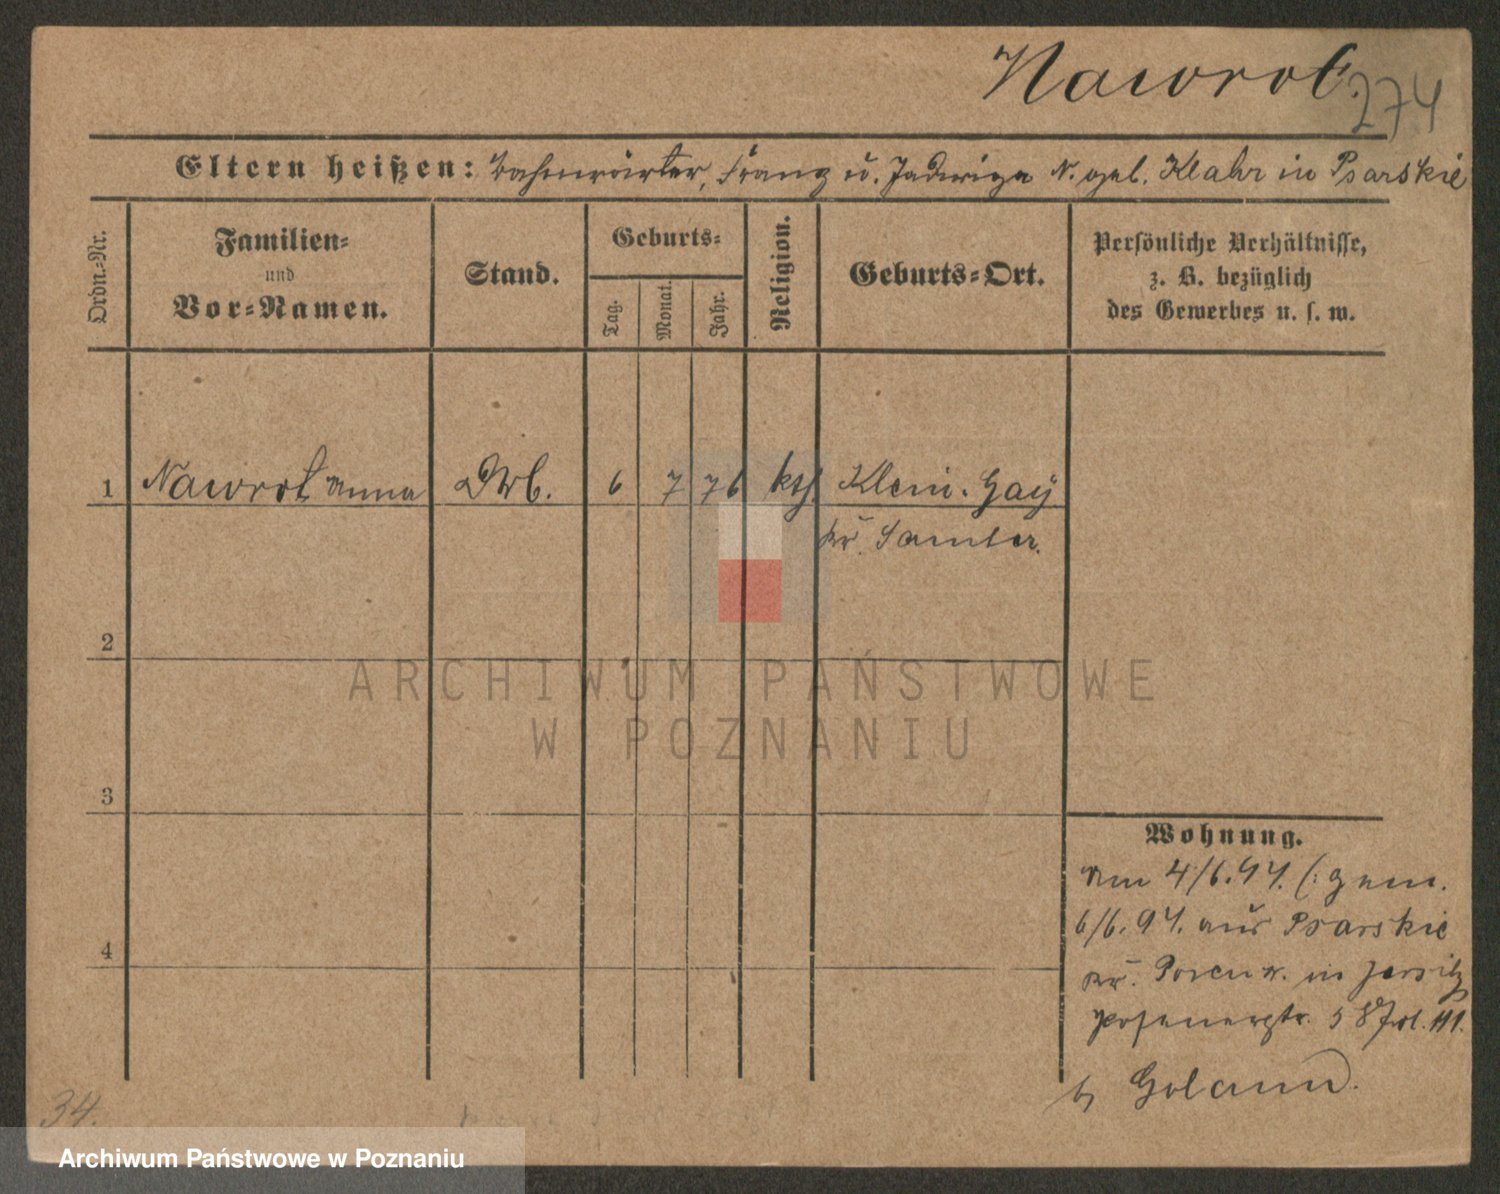 Nawrot.
274
Eltern heißen: Bahnwärter, Franz u. Jadwiga N. geb. Klahr in Psarskie
Ordn.-Nr.
Familien-
und
Vor-Namen.
Stand.
Geburts-
Tag.
Monat.
Jahr.
Religion.
Geburts-Ort.
Persönliche Verhältnisse,
z. B. bezüglich
des Gewerbes u. s. w.
1 Nawrot Anna 6 7 76 kth. Klein. Gay
Kr. Samter.
2
3
4
Wohnung.
Am 4/6. 94. (: gem.
6/6. 94. aus Psarskie
Kr. Posen in Jersitz
Posenerstr. 5
b/
34.
ARCHIWUM PAŃSTWOWE
W POZNANIU
Archiwum Państwowe w Poznaniu